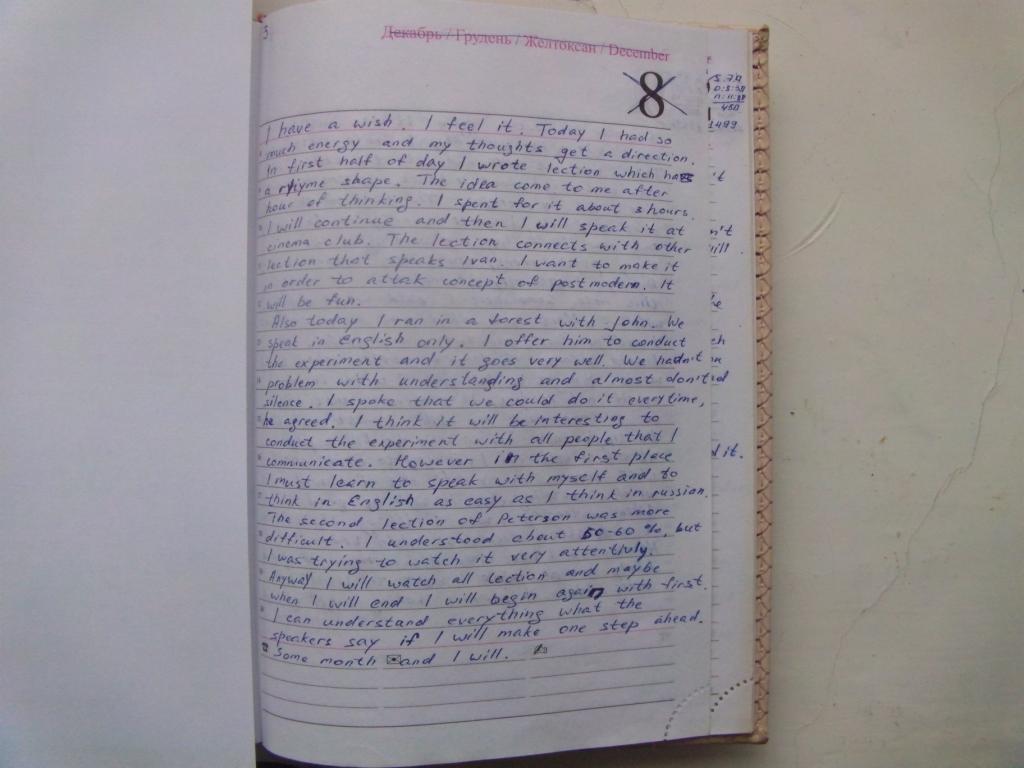 3
Декабрь / Грудень / Желтоксан / December
8
I have a wish. I feel it. Today I had so
much energy and my thoughts get a direction.
In first half of day I wrote lection which has
a rhyme shape. The idea come to me after
hour of thinking. I spent for it about 3 hours.
I will continue and then I will speak it at
cinema club. The lection connects with other
lection that speaks Ivan. I want to make it
in order to attak concept of postmodern. It
will be fun.
Also today I ran in a forest with John. We
speak in English only. I offer him to conduct
the experiment and it goes very well. We hadn't
problem with understanding and almost don't
silence. I spoke that we could do it everytime,
he agreed. I think it will be interesting to
conduct the experiment with all people that I
communicate. However in the first place
I must learn to speak with myself and to
think in English as easy as I think in russian.
The second lection of Peterson was more
difficult. I understood about 50-60 %, but
I was trying to watch it very attentivly.
Anyway I will watch all lection and maybe
when I will end I will begin again with first.
I can understand everything what the
speakers say if I will make one step ahead.
Some month and I will.
1499
n't
ill.
d it.